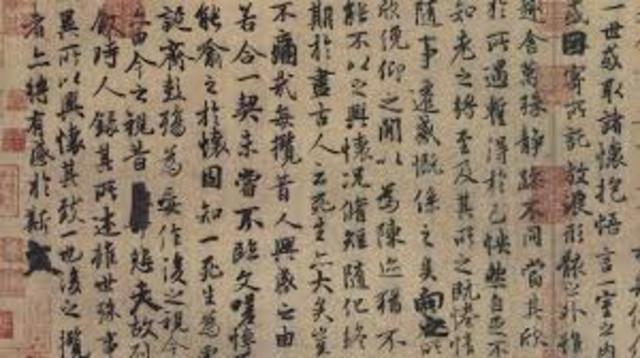 一世或取諸懷抱悟言一室之內
或因寄所託放浪形骸之外雖
趣舍萬殊靜躁不同當其欣
於所遇蹔得於己怏然自足不
知老之將至及其所之既惓情
隨事遷感慨係之矣向之所
欣俛仰之閒以為陳迹猶不
能不以之興懷況脩短隨化終
期於盡古人云死生亦大矣豈
不痛哉每攬昔人興感之由
若合一契未嘗不臨文嗟悼
能喻之於懷固知一死生為虛
誕齊彭殤為妄作後之視今
由今之視昔悲夫故列
敘時人錄其所述雖世殊事
異所以興懷其致一也後之攬
者亦將有感於斯文